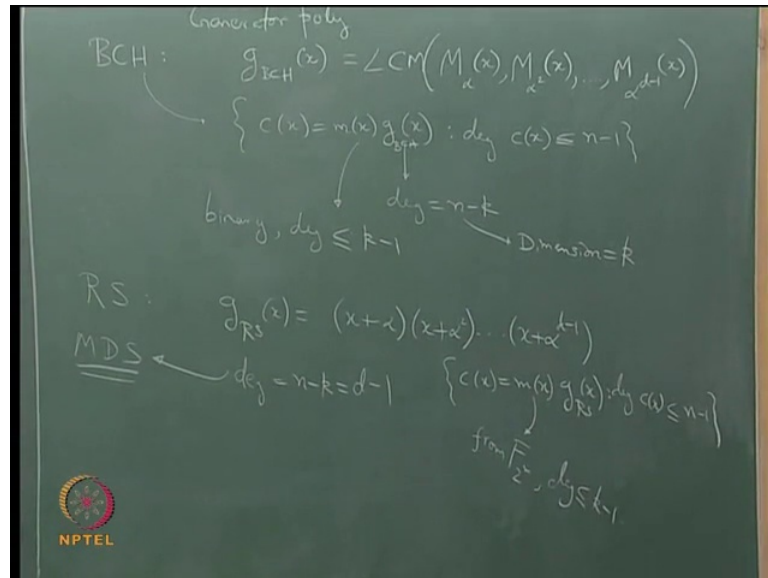 Generator poly
BCH : g_BCH(x) = LCM(M_α(x), M_α²(x), ..., M_α^{d-1}(x))
{ c(x) = m(x) g_BCH(x) : deg c(x) ≤ n-1 }
deg = n-k
binary, deg ≤ k-1
Dimension = k
RS : g_RS(x) = (x+α)(x+α²)...(x+α^{d-1})
MDS
deg = n-k = d-1
{ c(x) = m(x) g_RS(x) : deg c(x) ≤ n-1 }
from F_2^r, deg ≤ k-1
NPTEL